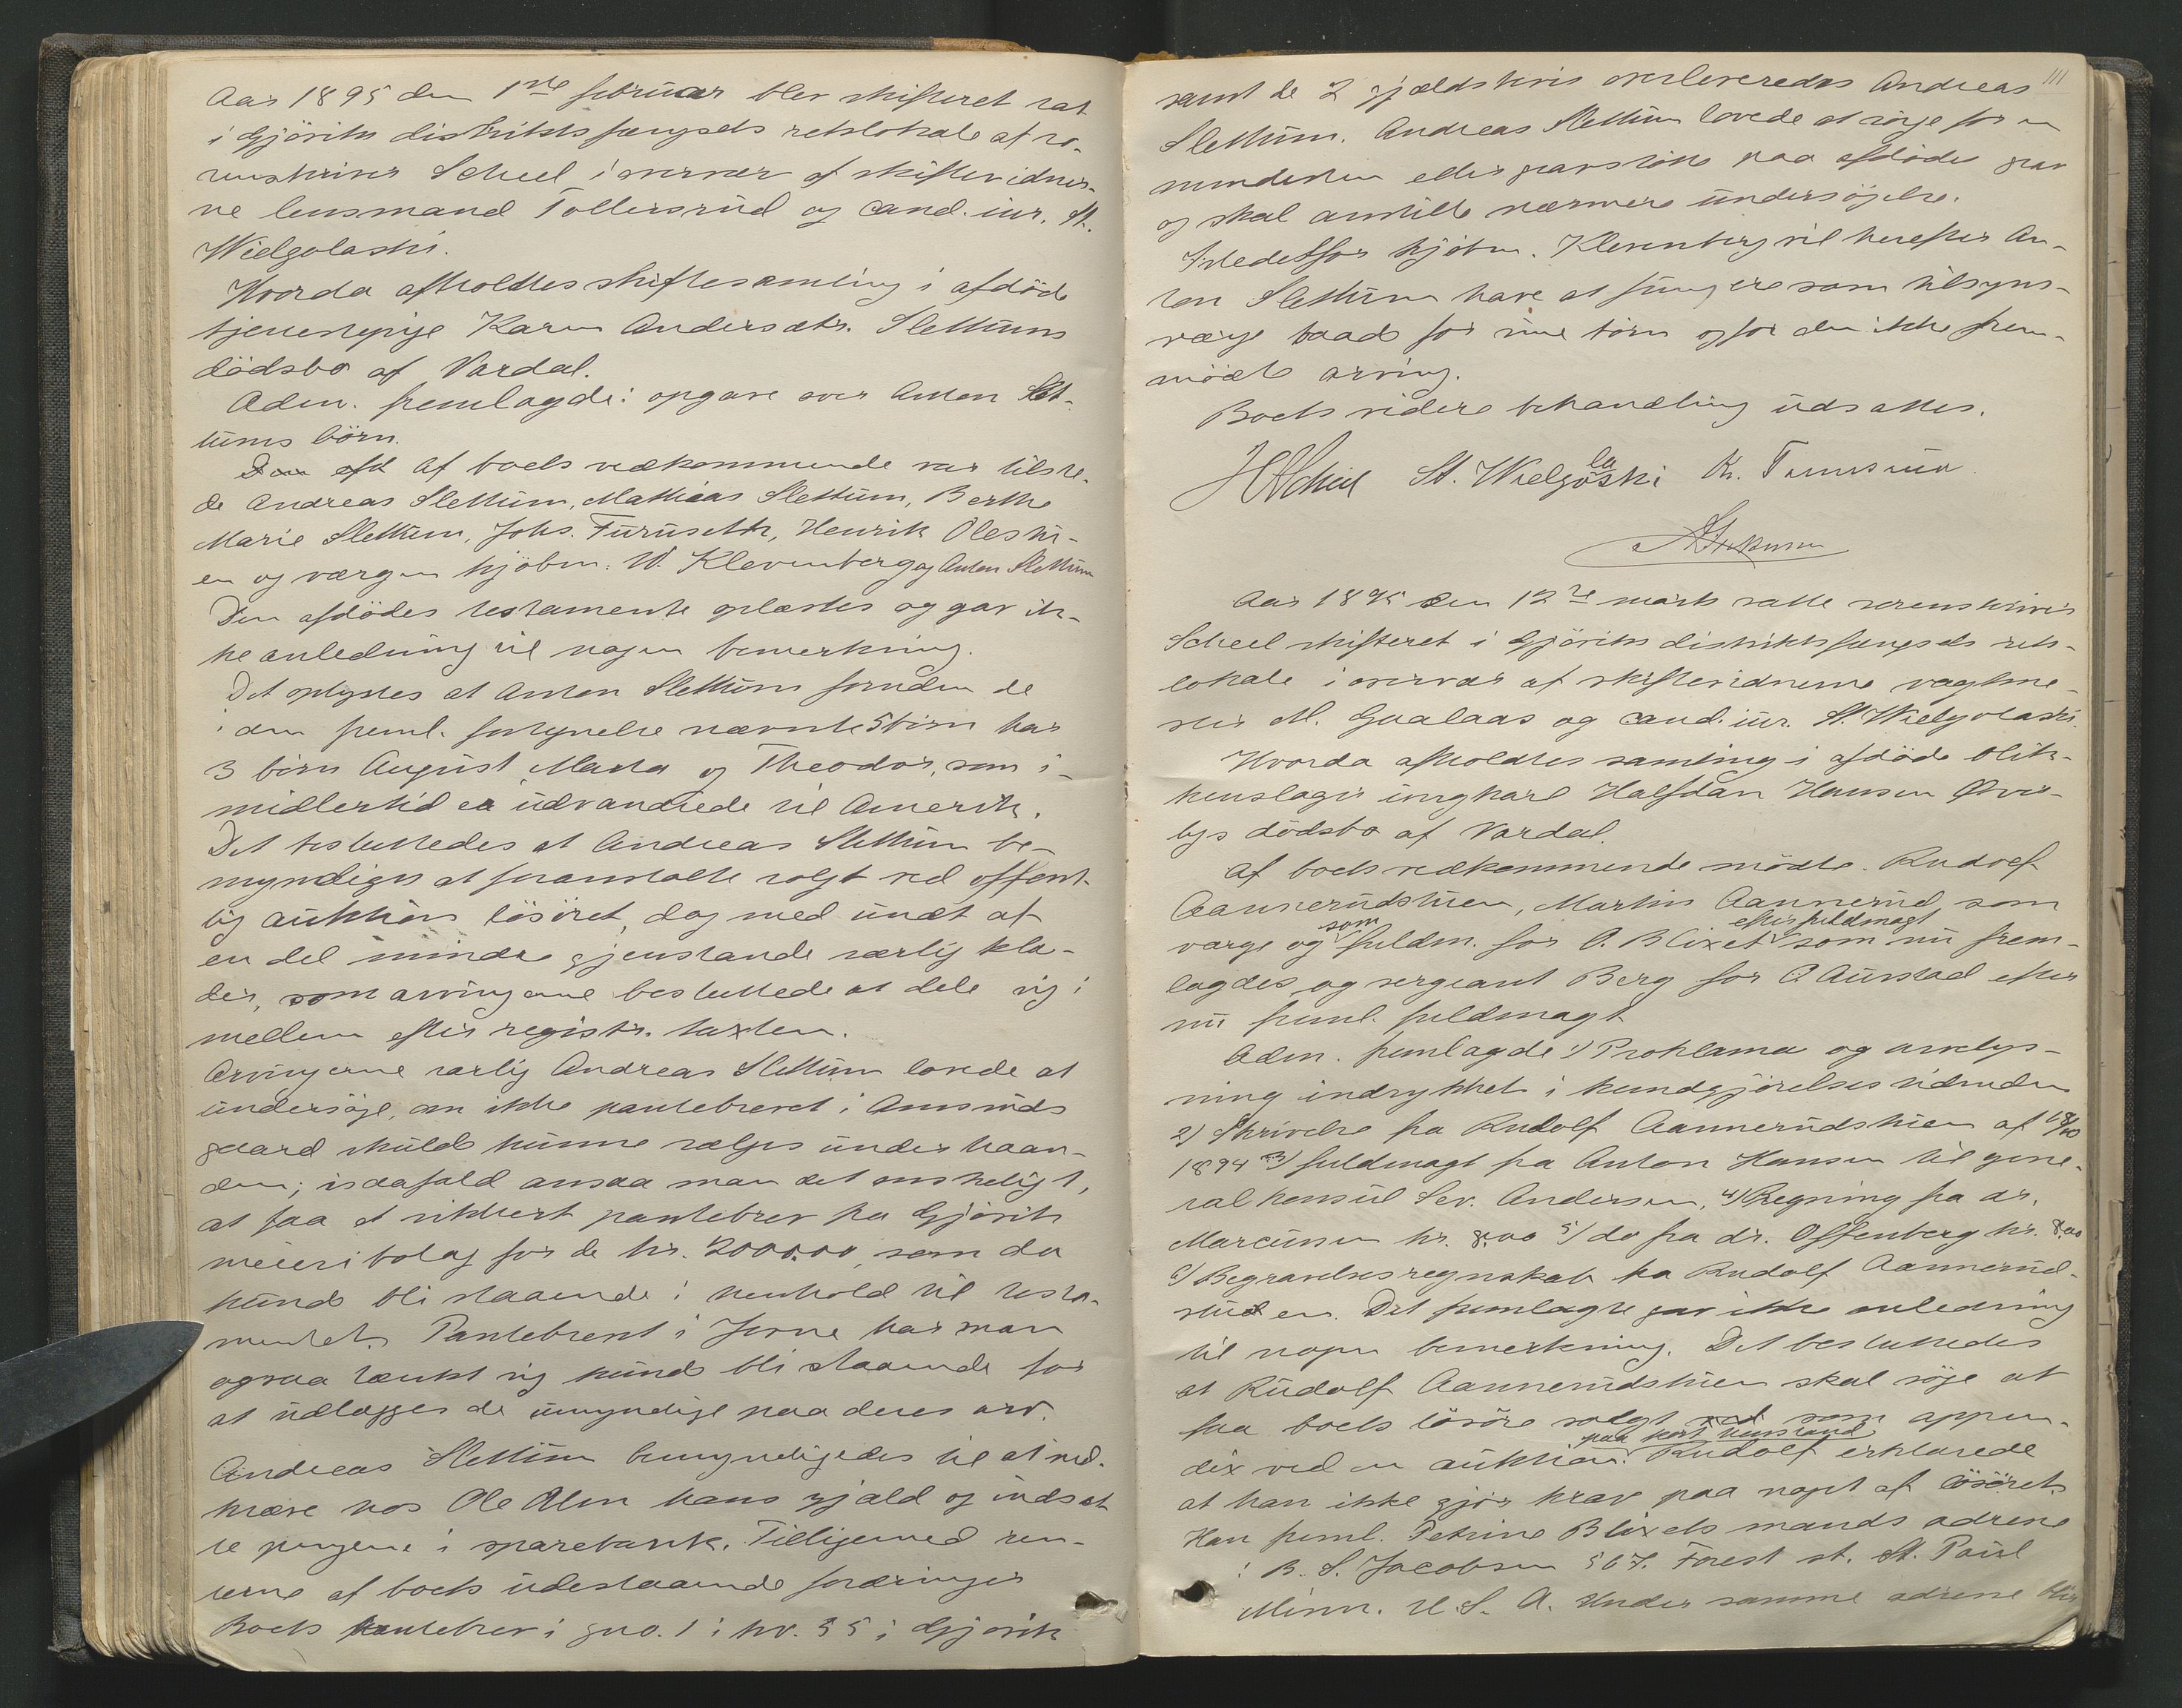 Aar 1895 den 1ste februar blev skifteret sat
i Gjøviks distriktsfængsels retslokale af so-
renskriver Scheel i overvær af skiftevidner-
ne lensmand Tollersrud og cand. jur. St.
Wielgolaski.
Hvorda afholdtes skiftesamling i afdöde
tjenestepige Karen Andersdtr. Slettums
dödsbo af Vardal.
Adm. fremlagde: opgave over Anton Slet-
tums börn.
Af boets vedkommende var tilste-
de Andreas Slettum, Mathias Slettum, Berthe
Marie Slettum, Johs. Furuseth, Henrik Olesti-
en og værgen kjøbm. W. Klevenberg og Anton Slettum
Den afdödes testamente oplæstes og gav ik-
ke anledning til nogen bemerkning.
Det oplystes at Anton Slettum foruden de
i den freml. fortegnelse nævnte 5 börn har
3 börn August, Marta og Theodor, som i-
midlertid er udvandrede til Amerika.
Det besluttedes at Andreas Slettum be-
myndiges at foranstalte solgt ved offent-
lig auktion lösöret, dog med undt. af
en del mindre gjenstande særlig klæ-
der, som arvingerne besluttede at dele sig i
mellem efter registr. taxten.
Arvingerne særlig Andreas Slettum lovede at
undersöge, om ikke pantebrevet i Amsruds
gaard skulde kunne sælges underhaan-
den; i saafald ansaa man det önskeligt,
at faa et sikkert pantebrev fra Gjövik
meieribolag for de kr. 2000.00, som da
kunde bli staaende i henhold til testa-
mentet. Pantebrevet i Jerne har man
ogsaa tænkt sig kunde bli staaende for
at udlægges de umyndige paa deres arv.
Andreas Slettum bemyndigedes til at ind-
kræve hos Ole Alm hans gjæld og indsæt
te pengene i sparebank. Tilligemed ren-
terne af boets udestaaende fordringer
Boets pantebrev i gno. 1 i kv. 35 i Gjövik
111
samt de 2 gjældsbrev overleveredes Andreas
Slettum. Andreas Slettum lovede at sörge for en
mindesten eller gravstötte paa afdödes grav
og skal anstille nærmere undersögelse.
Istedetfor kjöbm. Klevenberg vil herefter An-
ton Slettum have at fungere som tilsyns-
værge baade for sine börn og for den ikke frem-
mödte arving.
Boets videre behandling udsattes.
HScheel St. Wielgolaski K.
Aar 1895 den 12te marts satte sorenskriver
Scheel skifteret i Gjöviks distriktsfængsels rets-
lokale i overvær af skiftevidnerne vagtme-
ster M. Gaalaas og cand. jur. St. Wielgolaski.
Hvorda afholdtes samling i afdöde blik-
kenslager ungkarl Halfdan Hansen Över-
bys dödsbo af Vardal.
Af boets vedkommende mödte. Rudolf
Aannerudstuen, Martin Aannerud som
værge og som fuldm. for O. Blixet efter fuldmagt som nu frem-
lagdes og sergeant Berg for O Aurstad efter
nu freml. fuldmagt
Adm. fremlagde 1) Proklama og arvelys-
ning indrykket i kundgjörelsestidenden
2) Skrivelse fra Rudolf Aannerudstuen af 18/10
1894 3) fuldmagt fra Anton Hansen til gene-
ralkonsul Sev. Andersen, 4) Regning fra dr.
Marcussen kr. 8.00 5) do fra dr. Offenberg kr. 8.00
6) Begravelsesregnskab fra Rudolf Aannerud-
stuen. Det fremlagte gav ikke anledning
til nogen bemerkning. Det besluttedes
at Rudolf Aannerudstuen skal söge at
faa boets lösöre solgt som appen-
dix ved en auktion paa post Hunstand Rudolf erklærede
at han ikke gjör krav paa noget af lösöret.
Han freml. Petrine Blixets mands adresse
: B. S. Jacobsen 567. Forest st. St. Paul
Minn. U. S. A. Under samme adresse bor